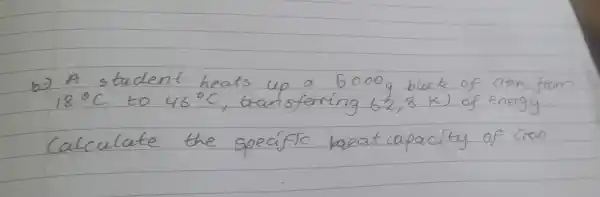 b) A student heats up a 5000g block of iron from
18°C to 46°C, transferring 62,8 KJ of energy
Calculate the specific heat capacity of iron